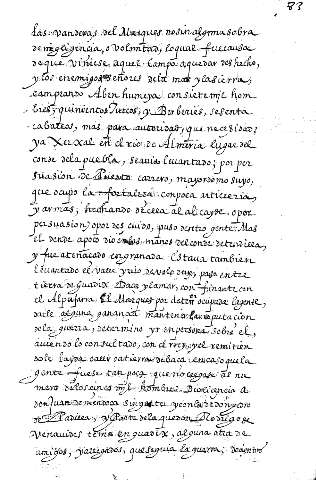 83
las vanderas del Marques no sin alguna sobra
de negligencia, o voluntad, lo qual fue causa
de que viniese aquel campo a quedar deshecho,
y los enemigos señores dela mar y la sierra,
campeando Aben humeya con siete mil hom
bres, quinientos turcos, y Berberies, sesenta
cavallos, mas para autoridad, que necesidad.
ya Xerxal en el rio de Almeria lugar del
conde dela puebla, se avia levantado; por per
suasion de Puerto carrero, mayordomo suyo,
que ocupo la fortaleza con poca artilleria
y armas; hechando de ella al alcayde, o por
persuasion, o por descuido, puso dentro gente. Mas
el dende a poco dio en las manos del conde de tendilla,
y fue atenaceado en granada. Estava tambien
levantado el valle y rio de voloduy, paso entre
tierra de Guadix, Baza, y la mar, confinante con
el Alpujara. El Marques por tener ocupada la gente,
darle alguna ganancia mantener la reputacion
de la guerra, determino yr en persona sobre el,
aviendo lo consultado, con el rrey, que le remitio
dole la yda o caer a tierra de baca en caso que la
gente fuese tan poca que no llegase al nu
mero de los cinco mil hombres. Dio licencia a
don Juan de mendoca sin gente y con la de don pedro
de Padilla, y parte dela que don Rodrigo de
Venavides tenia en guadix, alguna otra de
amigos, y allegados, que seguia la guerra;